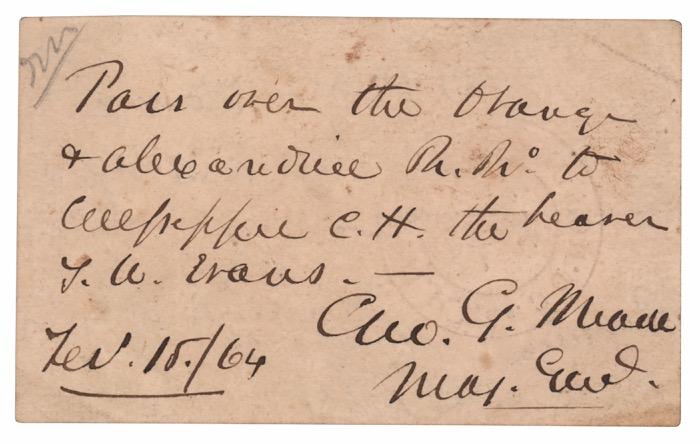 Pass over the Orange
& Alexandria R. Rd. to
Culpepper C. H. the bearer
Evans. —
Geo. G. Meade
Feb. 15./64
Maj. Genl.